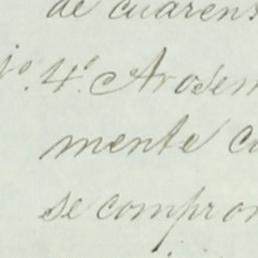 de cuaren
jo. 4º. Arosem
mente c
se compro